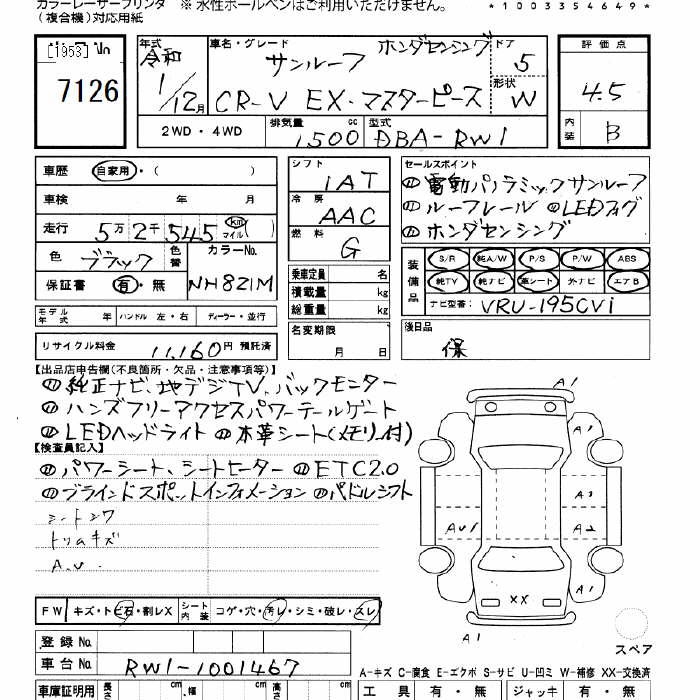 カラーレーザープリンタ ※ 水性ボールペンはご利用いただけません。
(複合機)対応用紙
*1003354649*
[1953]
7126
年式 令和 1/12月
車名・グレード サンルーフ ホンダセンシング
CR-V EX・マスターピース
ドア 5
形状 W
評価点 4.5
内装 B
2WD・4WD
排気量 1500 cc
型式 DBA-RW1
車歴 自家用・( )
車検 年 月
走行 5万2千545 km マイル( )
色 ブラック 色替 カラーNo. NH821M
保証書 有・無
モデル年式 年 ハンドル 左・右 ディーラー・並行
リサイクル料金 11,160円 預託済
シフト IAT
冷房 AAC
燃料 G
乗車定員 名
積載量 kg
総重量 kg
名変期限 月 日
セールスポイント
電動パノラミックサンルーフ
ルーフレール LEDフォグ
ホンダセンシング
装備品 S/R 純A/W P/S P/W ABS
純TV 純ナビ 革シート 外ナビ エアB
ナビ型番: VRU-195CVi
後日品
保
【出品店申告欄(不良箇所・欠品・注意事項等)】
純正ナビ、地デジTV、バックモニター
ハンズフリーアクセスパワーテールゲート
LEDヘッドライト 本革シート(メモリー付)
【検査員記入】
パワーシート、シートヒーター ETC2.0
ブラインドスポットインフォメーション パドルシフト
シートシワ
トリムキズ
A.U.
FW キズ・トビ石・割レX シート内装 コゲ・穴・汚レ・シミ・破レ・スレ
登録No.
車台No. RW1-1001467
車庫証明用 長さ cm 幅 cm 高さ cm
A1
A1
A3
AU1
A2
XX
A1
A1
スペア
A-キズ C-腐食 E-エクボ S-サビ U-凹ミ W-補修 XX-交換済
工具 有・無 ジャッキ 有・無